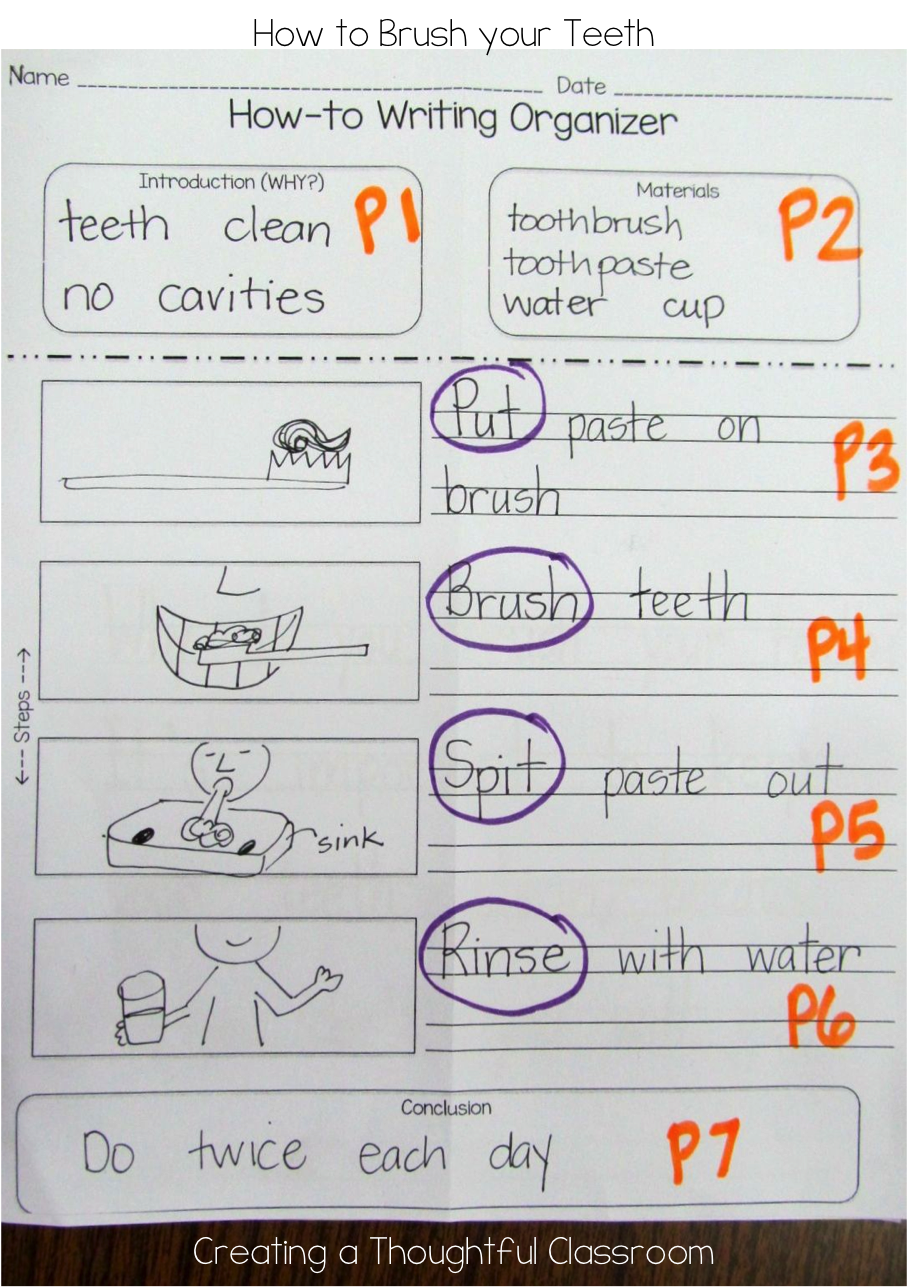 How to Brush your Teeth
Name Date
How-to Writing Organizer
Introduction (WHY?)
teeth clean P1
no cavities
Materials
toothbrush P2
toothpaste
water cup
Put paste on
brush P3
Brush teeth
P4
<--- Steps --->
Spit paste out
P5
sink
Rinse with water
P6
Conclusion
Do twice each day P7
Creating a Thoughtful Classroom